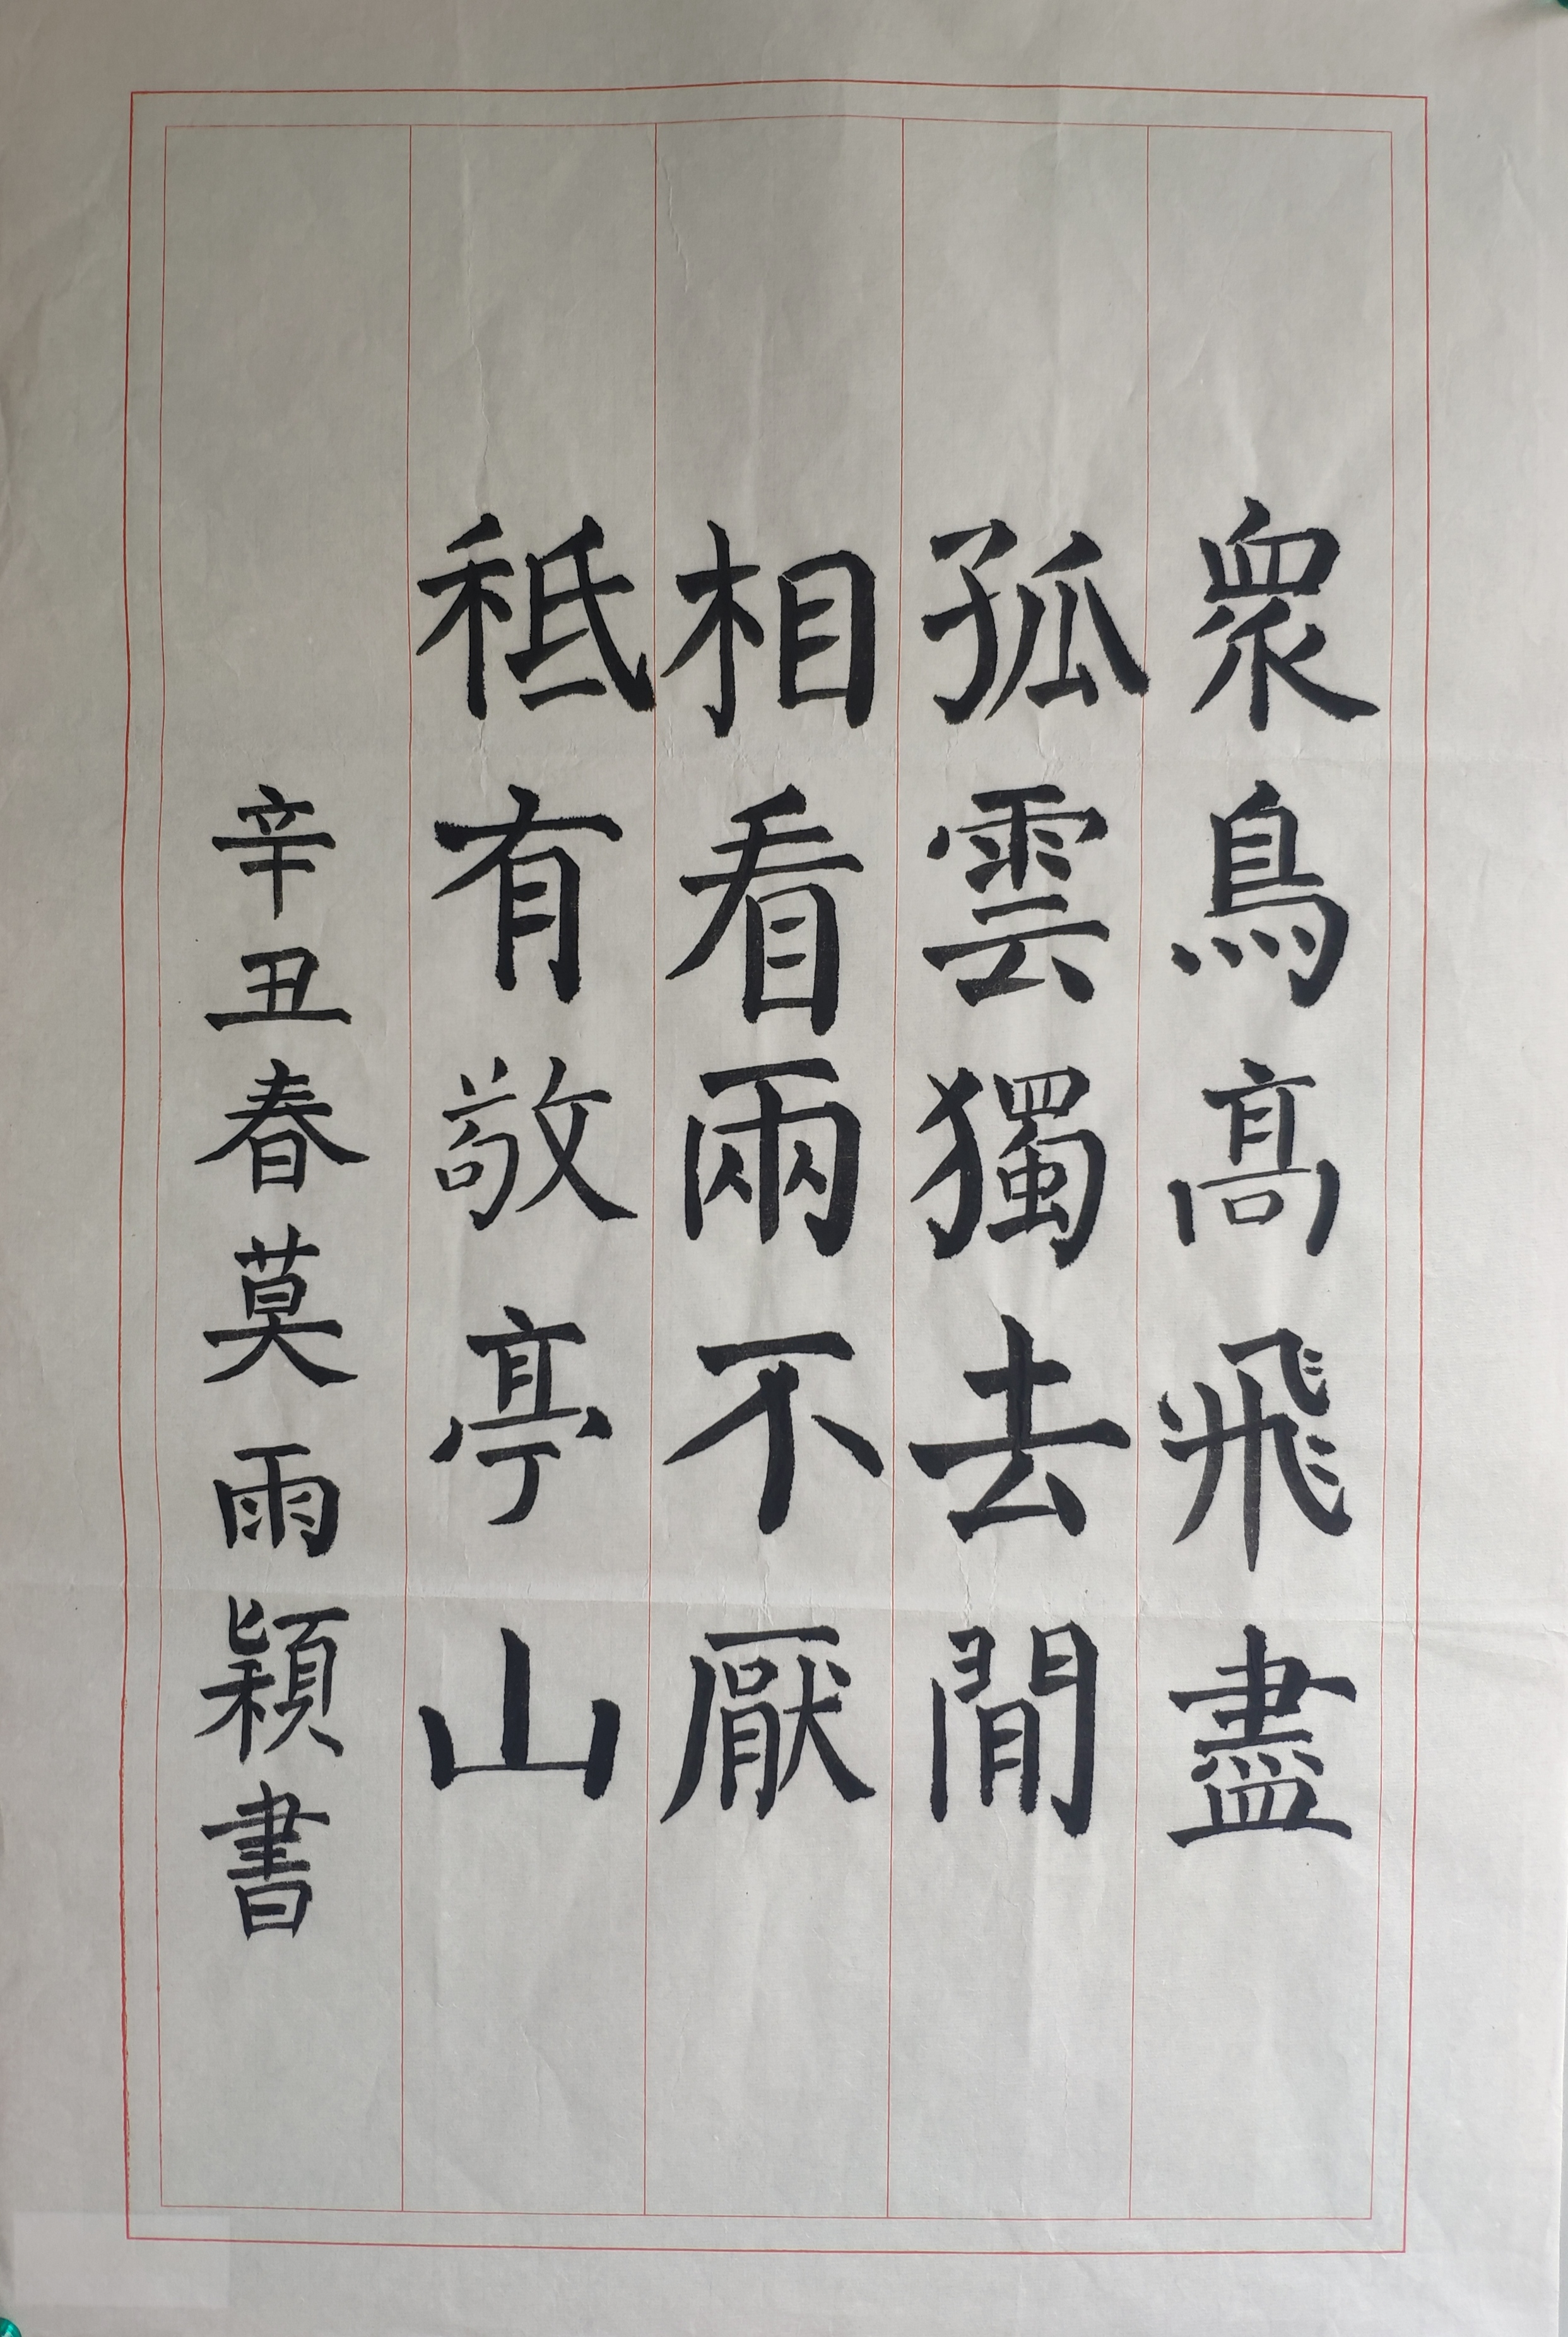 眾鳥高飛盡
孤雲獨去閒
相看兩不厭
秖有敬亭山
辛丑春莫雨穎書